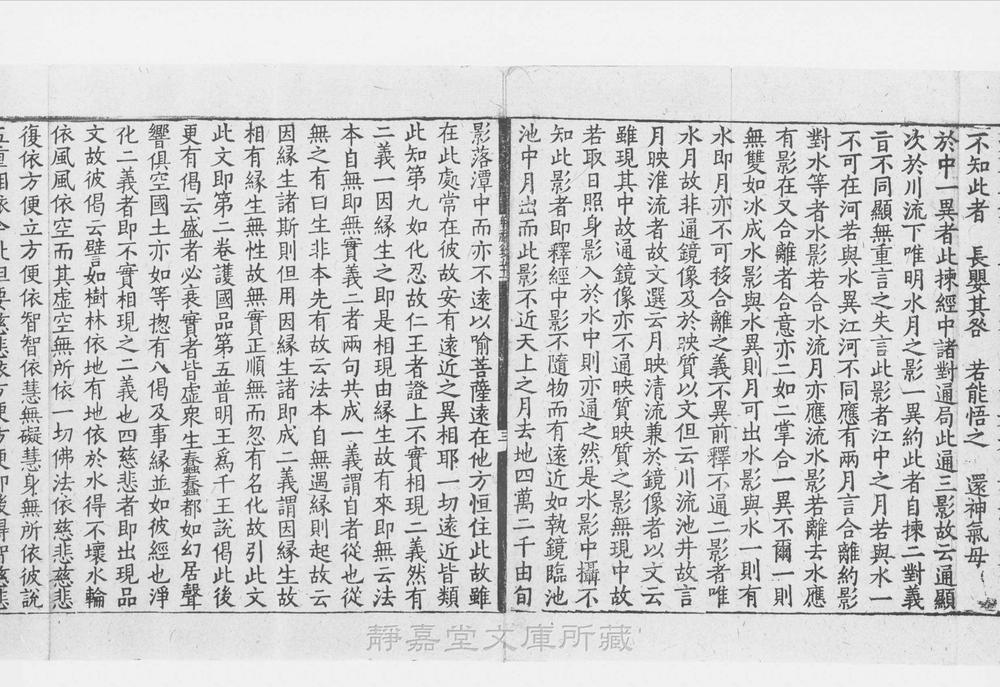 不知此者　長嬰其咎　若能悟之　還神氣母
於中一異者此揀經中諸對通局此通三影故云通顯
次於川流下唯明水月之影一異約此者自揀二對義
言不同顯無重言之失言此影者江中之月若與水一
不可在河若與水異江河不同應有兩月言合離約影
對水等者水影若合水流月亦應流水影若離去水應
有影在又合離者合意亦二如二掌合一異不爾一則
無雙如氷成水影與水異則月可出水影與水一則有
水即月亦不可移合離之義不異前釋不通二影者唯
水月故非通鏡像及於映質以文但云川流池井故言
月映淮流者故文選云月映清流兼於鏡像者以文云
雖現其中故通鏡像亦不通映質映質之影無現中故
若取日照身影入於水中則亦通之然是水影中攝不
知此影者即釋經中影不隨物而有遠近如執鏡臨池
池中月出而此影不近天上之月去地四萬二千由旬
影落潭中而亦不遠以喻菩薩遠在他方恒住此故雖
在此處常在彼故安有遠近之異相耶一切遠近皆類
此知第九如化忍故仁王者證上不實相現二義然有
二義一因緣生之即是相現由緣生故有來即無云法
本自無即無實義二者兩句共成一義謂自者從也從
無之有曰生非本先有故云法本自無遇緣則起故云
因緣生諸斯則但用因緣生諸即成二義謂因緣生故
相有緣生無性故無實正順無而忽有名化故引此文
此文即第二卷護國品第五普明王爲千王說偈此後
更有偈云盛者必衰實者皆虛衆生蠢蠢都如幻居聲
響俱空國土亦如等揔有八偈及事緣並如彼經也淨
化二義者即不實相現之二義也四慈悲者即出現品
文故彼偈云譬如樹林依地有地依於水得不壞水輪
依風風依空而其虛空無所依一切佛法依慈悲慈悲
復依方便立方便依智智依慧無礙慧身無所依彼說
靜嘉堂文庫所藏